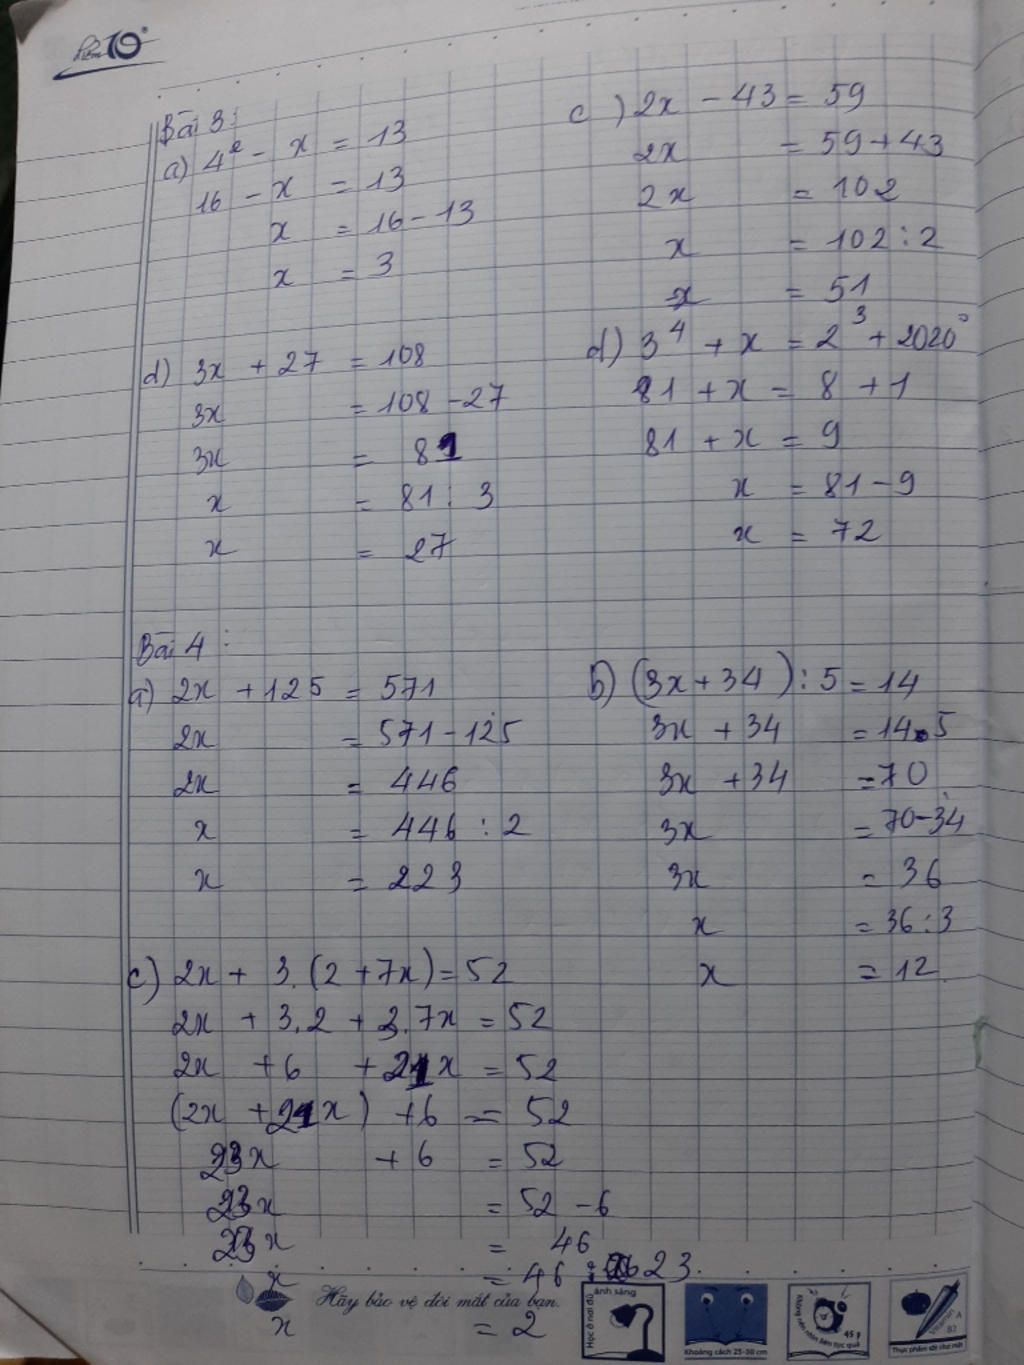 Điểm 10
Bài 3:
a) 4² - x = 13
16 - x = 13
x = 16 - 13
x = 3
c) 2x - 43 = 59
2x = 59 + 43
2x = 102
x = 102 : 2
x = 51
d) 3x + 27 = 108
3x = 108 - 27
3x = 81
x = 81 : 3
x = 27
d) 3⁴ + x = 2³ + 2020⁰
81 + x = 8 + 1
81 + x = 9
x = 81 - 9
x = 72
Bài 4:
a) 2x + 125 = 571
2x = 571 - 125
2x = 446
x = 446 : 2
x = 223
b) (3x + 34) : 5 = 14
3x + 34 = 14.5
3x + 34 = 70
3x = 70 - 34
3x = 36
x = 36 : 3
x = 12
c) 2x + 3.(2 + 7x) = 52
2x + 3.2 + 3.7x = 52
2x + 6 + 21x = 52
(2x + 21x) + 6 = 52
23x + 6 = 52
23x = 52 - 6
23x = 46
x = 46 : 23
x = 2
Hãy bảo vệ đôi mắt của bạn.
Học ở nơi đủ ánh sáng
Khoảng cách 25-30 cm
Không nên nhìn liên tục quá 45 p
Vitamin A B2
Thực phẩm tốt cho mắt